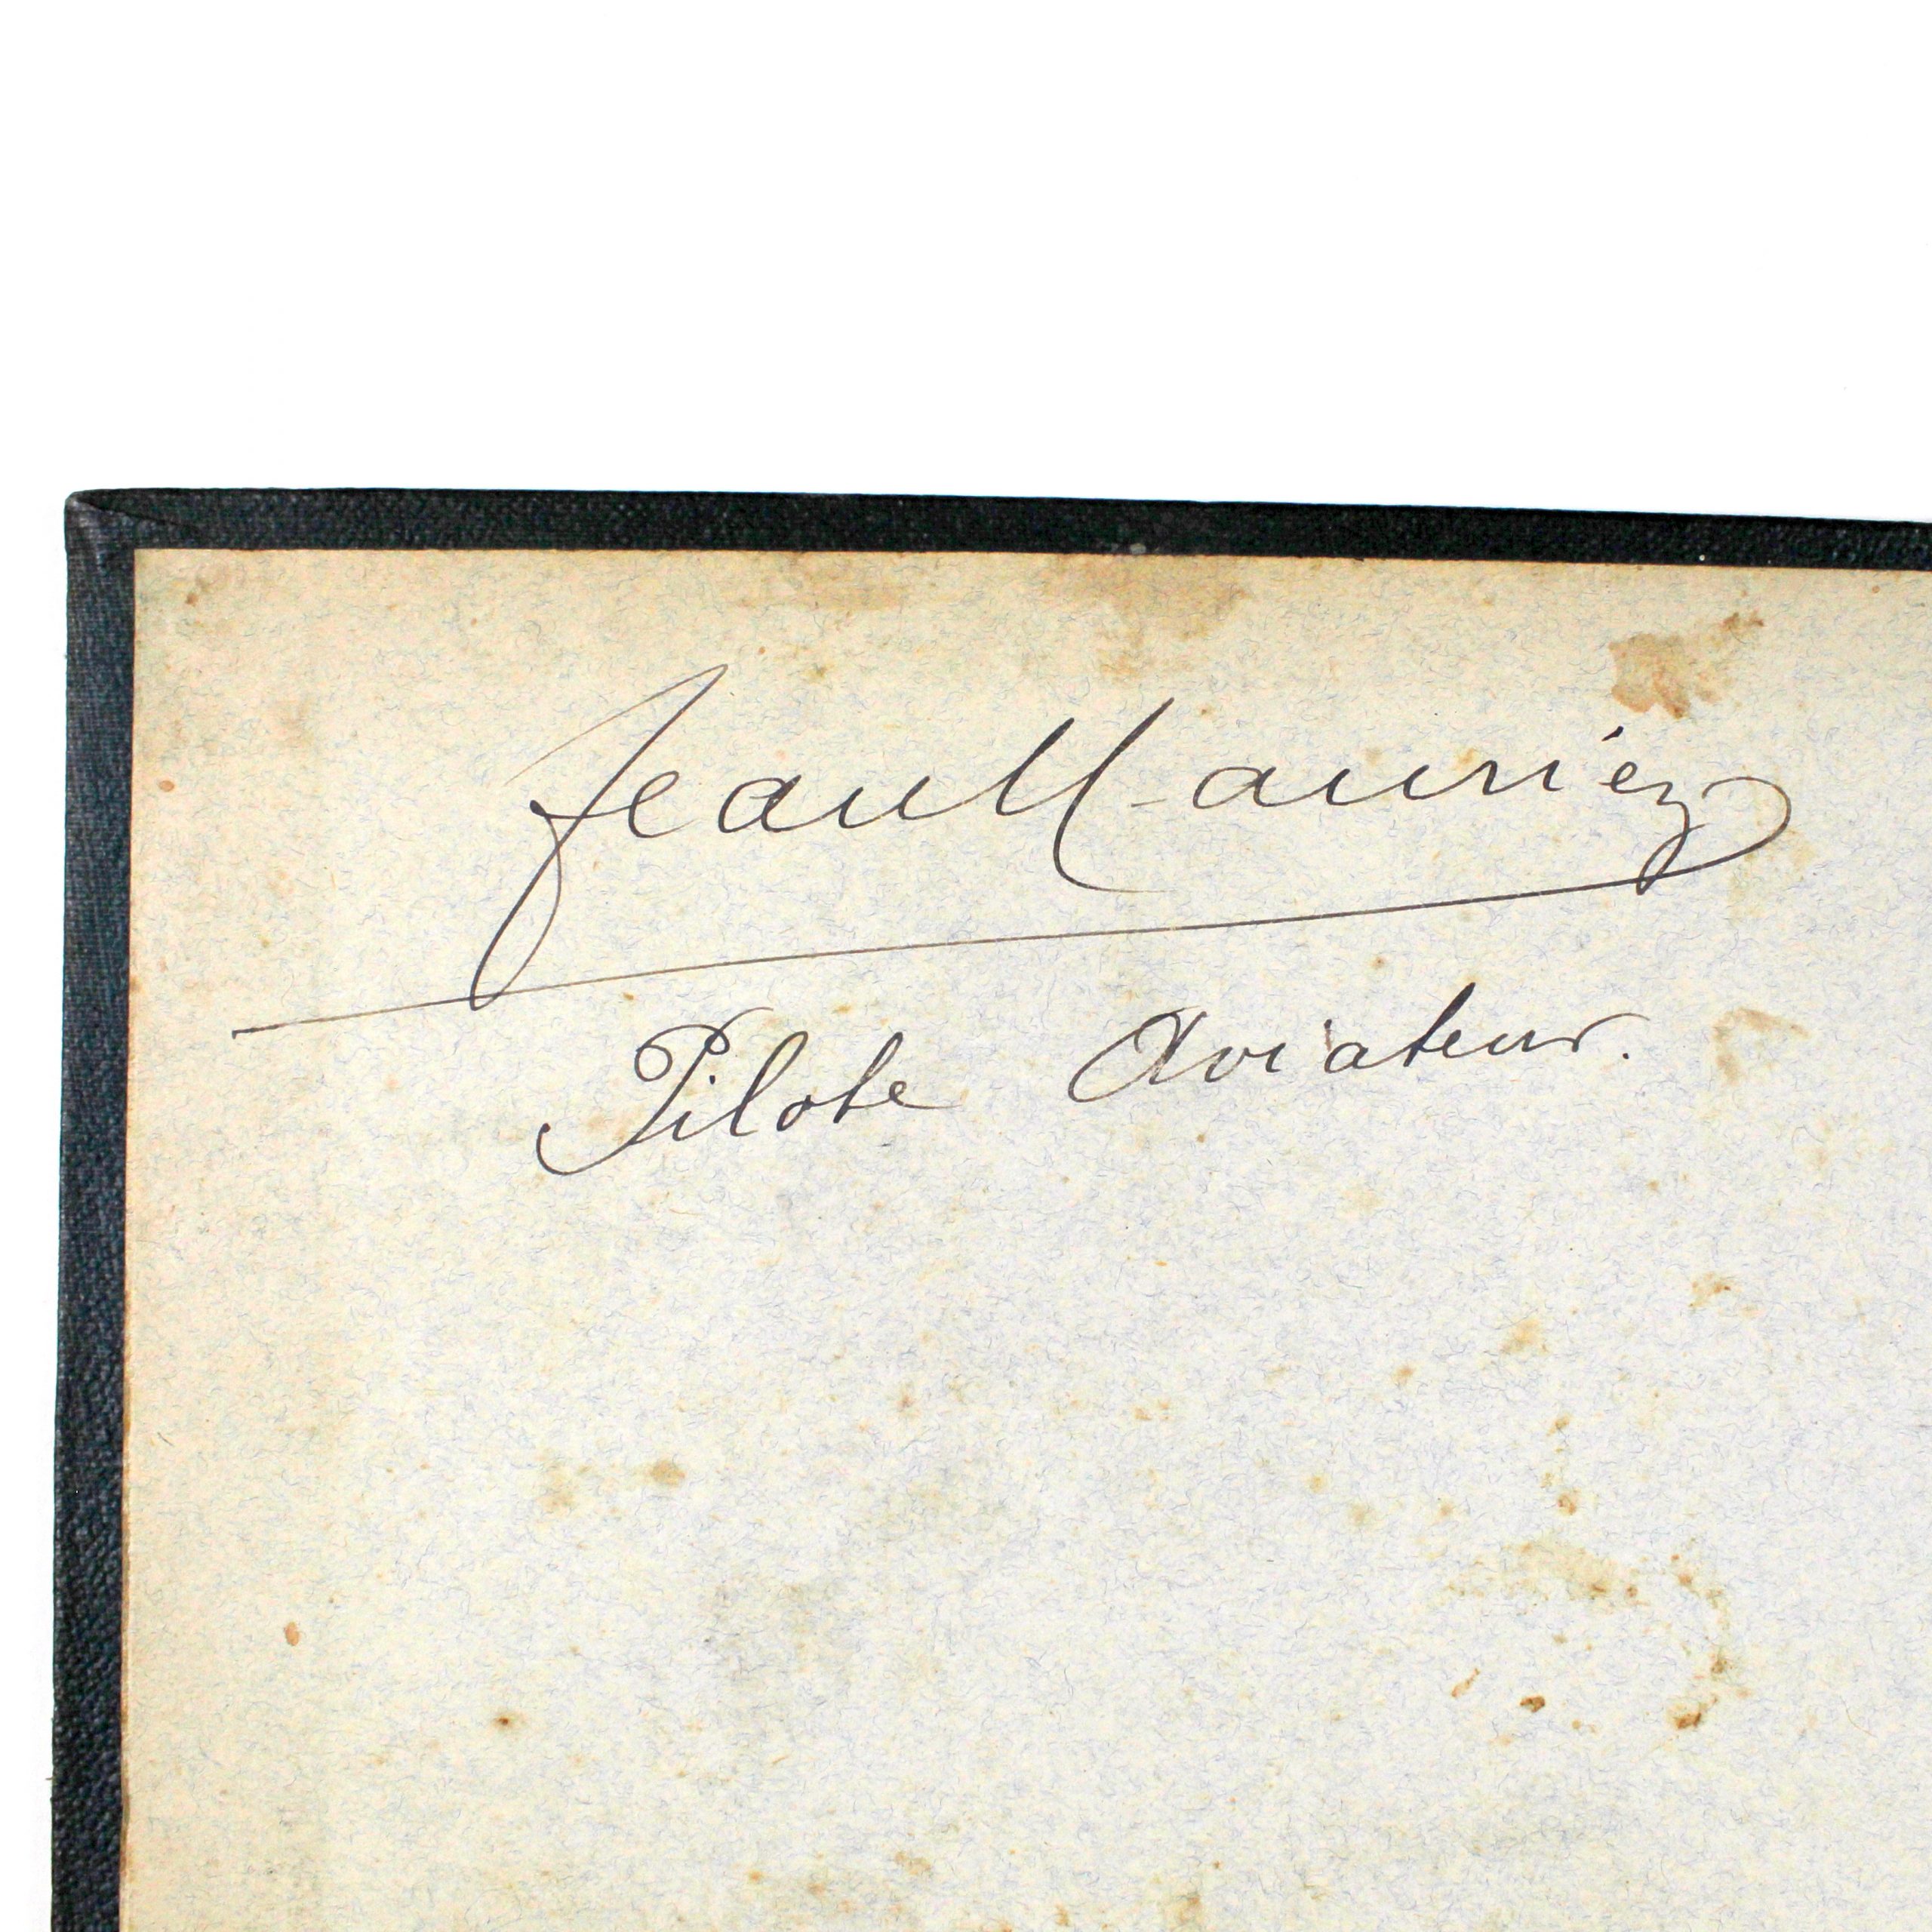 Jean Mauriez
Pilote Aviateur.